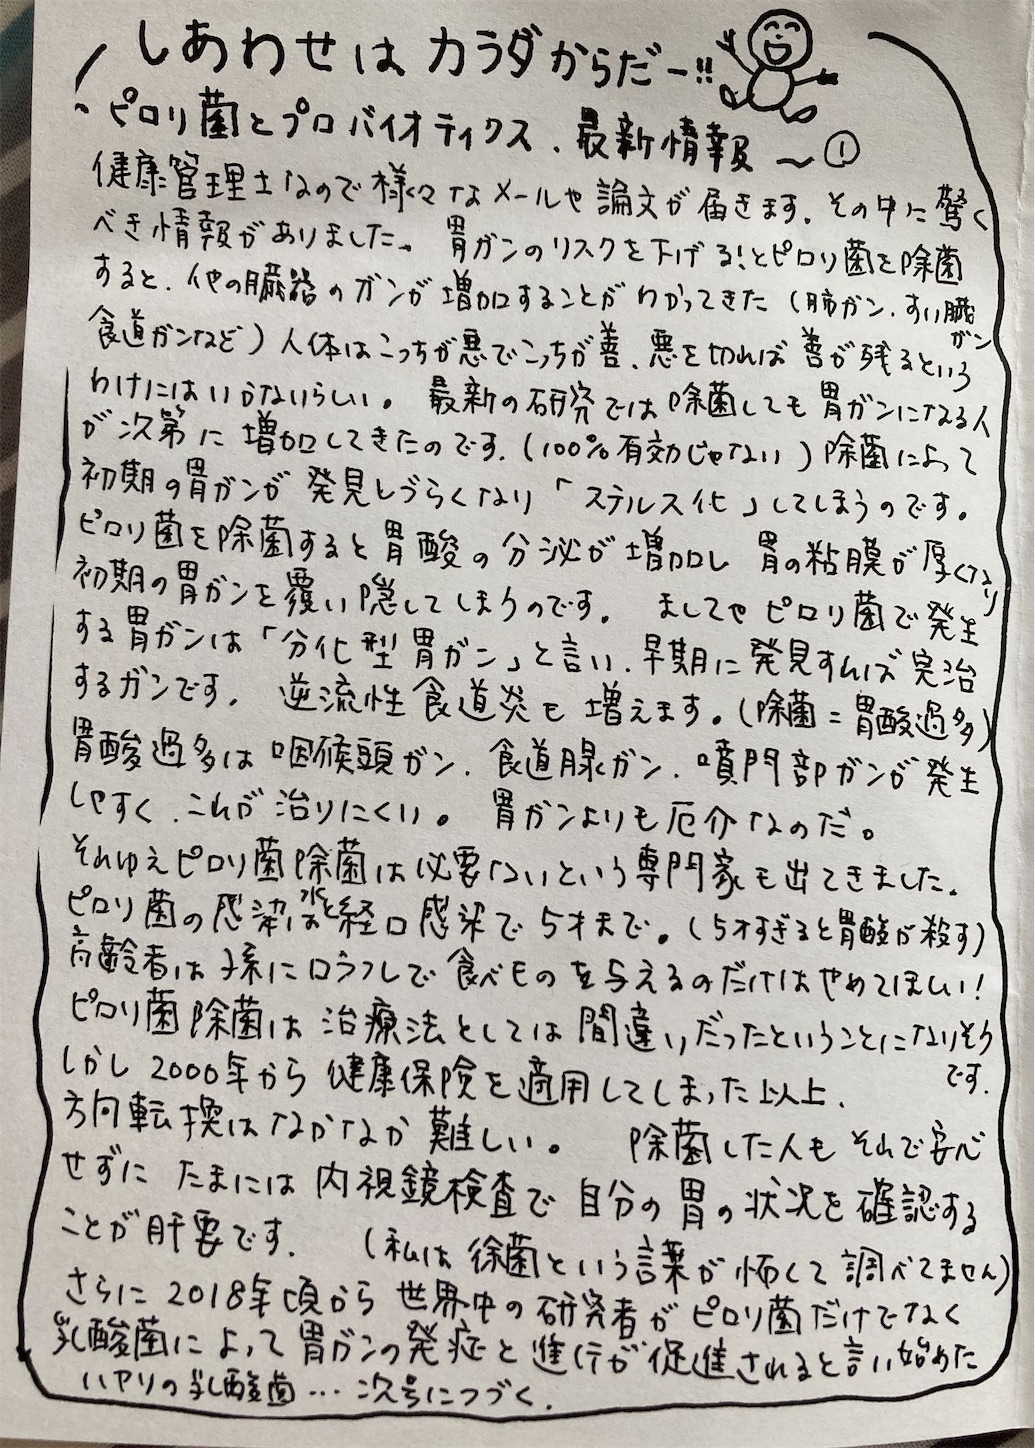 しあわせは カラダからだー!!
ピロリ菌とプロバイオティクス、最新情報 〜①
健康管理士なので様々なメールや論文が届きます。その中に驚く
べき情報がありました。 胃ガンのリスクを下げる!とピロリ菌を除菌
すると、他の臓器のガンが増加することがわかってきた(肺ガン、すい臓ガン
食道ガンなど)人体はこっちが悪でこっちが善、悪を切れば善が残るという
わけにはいかないらしい。 最新の研究では除菌しても胃ガンになる人
が次第に増加してきたのです。(100%有効じゃない)除菌によって
初期の胃ガンが発見しづらくなり「ステルス化」してしまうのです。
ピロリ菌を除菌すると胃酸の分泌が増加し 胃の粘膜が厚くなり
初期の胃ガンを覆い隠してしまうのです。 ましてやピロリ菌で発生
する胃ガンは「分化型胃ガン」と言い、早期に発見すれば完治
するガンです。 逆流性食道炎も増えます。(除菌=胃酸過多)
胃酸過多は咽候頭ガン、食道腺ガン、噴門部ガンが発生
しやすく、これが治りにくい。 胃ガンよりも厄介なのだ。
それゆえピロリ菌除菌は必要ないという専門家も出てきました。
ピロリ菌の感染は水と経口感染で5才まで。(5才すぎると胃酸が殺す)
高齢者は孫に口うつしで食べものを与えるのだけはやめてほしい!
ピロリ菌除菌は治療法としては間違いだったということになりそうです。
しかし2000年から健康保険を適用してしまった以上、
方向転換はなかなか難しい。 除菌した人もそれで安心
せずに たまには内視鏡検査で自分の胃の状況を確認する
ことが肝要です。 (私は除菌という言葉が怖くて調べてません)
さらに2018年頃から世界中の研究者がピロリ菌だけでなく
乳酸菌によって胃ガンの発症と進行が促進されると言い始めた
ハヤリの乳酸菌…次号につづく。